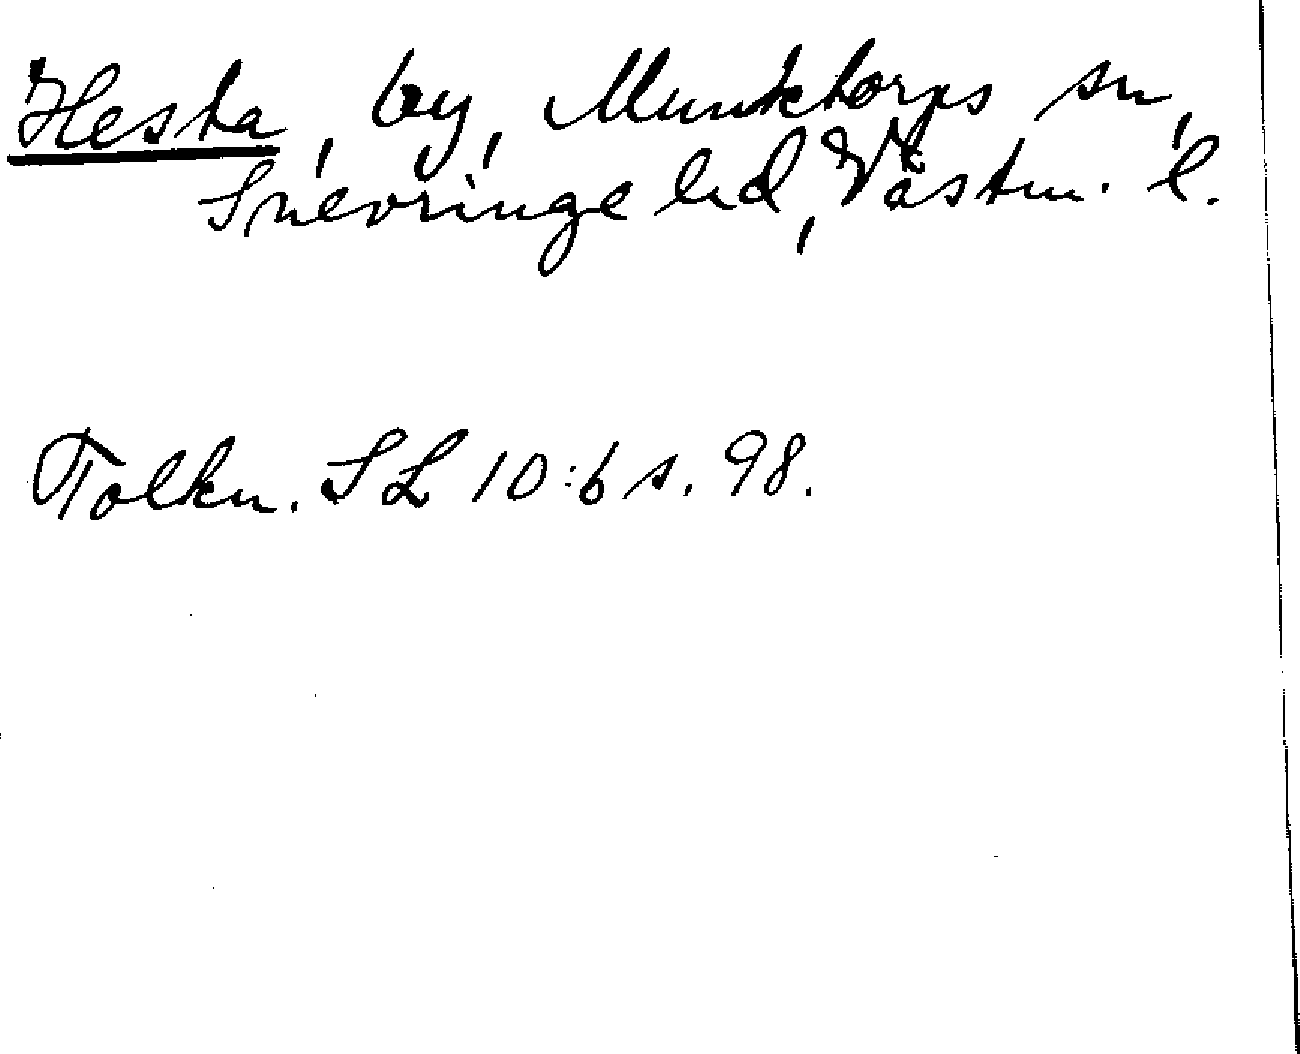 Hesta, by, Munktorps sn,
Snevringe hd, Västm. l.
Tolkn. SL 10:6 s. 98.